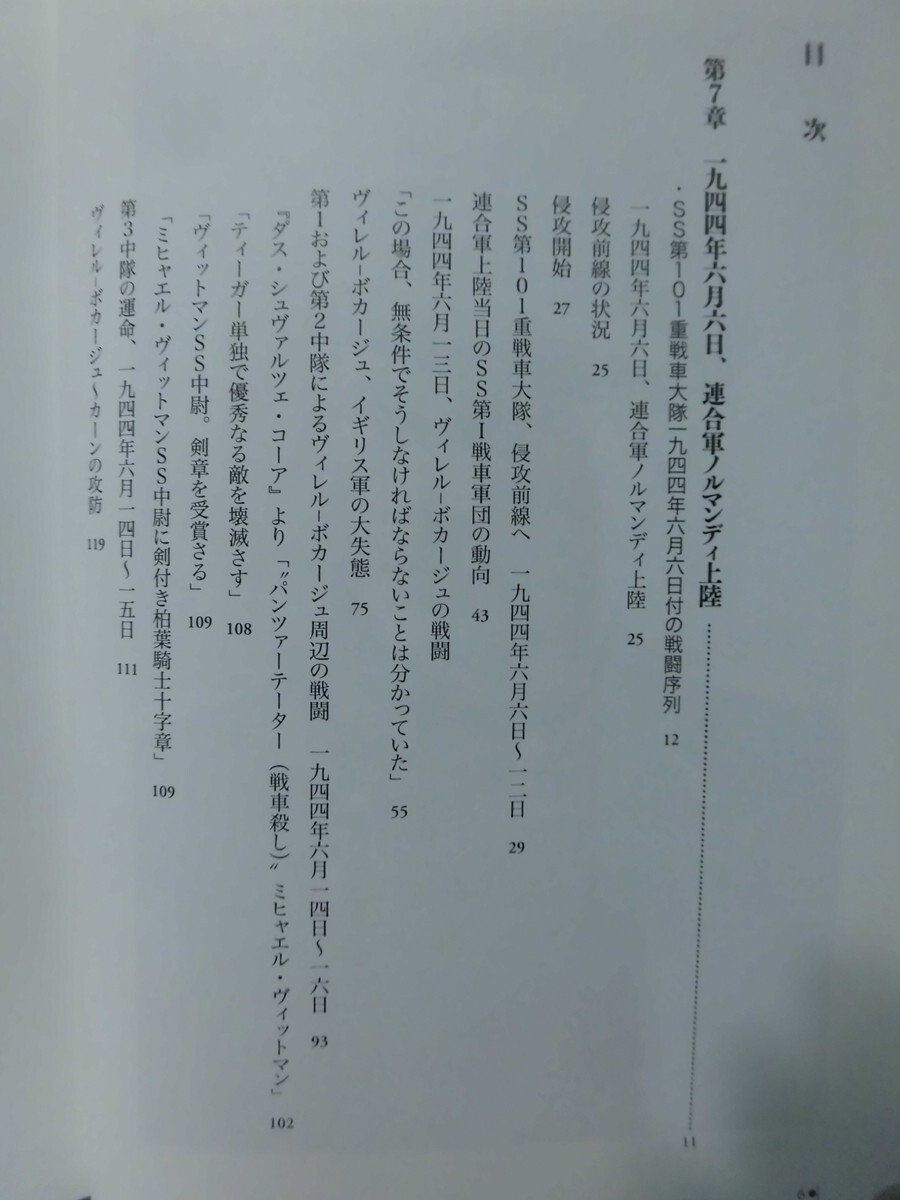 目次
第7章 一九四四年六月六日、連合軍ノルマンディ上陸 11
・SS第101重戦車大隊一九四四年六月六日付の戦闘序列 12
一九四四年六月六日、連合軍ノルマンディ上陸 25
侵攻前線の状況 25
侵攻開始 27
SS第101重戦車大隊、侵攻前線へ 一九四四年六月六日〜一二日 29
連合軍上陸当日のSS第I戦車軍団の動向 43
一九四四年六月一三日、ヴィレル=ボカージュの戦闘
「この場合、無条件でそうしなければならないことは分かっていた」 55
ヴィレル=ボカージュ、イギリス軍の大失態 75
第1および第2中隊によるヴィレル=ボカージュ周辺の戦闘 一九四四年六月一四日〜一六日 93
『ダス・シュヴァルツェ・コーア』より「〝パンツァーテーター(戦車殺し)〟ミヒャエル・ヴィットマン」 102
「ティーガー単独で優秀なる敵を壊滅さす」 108
「ヴィットマンSS中尉。剣章を受賞さる」 109
「ミヒャエル・ヴィットマンSS中尉に剣付き柏葉騎士十字章」 109
第3中隊の運命、一九四四年六月一四日〜一五日 111
ヴィレル=ボカージュ〜カーンの攻防 119